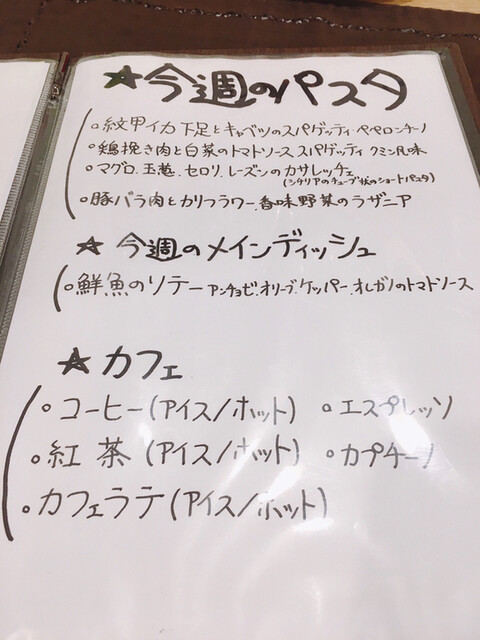 ☆今週のパスタ
○紋甲イカ下足とキャベツのスパゲッティ・ペペロンチーノ
○鶏挽き肉と白菜のトマトソーススパゲッティ クミン風味
○マグロ、玉葱、セロリ、レーズンのカサレッチェ
(シチリアのチューブ状のショートパスタ)
○豚バラ肉とカリフラワー、香味野菜のラザニア
☆今週のメインディッシュ
○鮮魚のソテー アンチョビ、オリーブ、ケッパー、オレガノのトマトソース
☆カフェ
○コーヒー(アイス/ホット) ○エスプレッソ
○紅茶(アイス/ホット) ○カプチーノ
○カフェラテ(アイス/ホット)